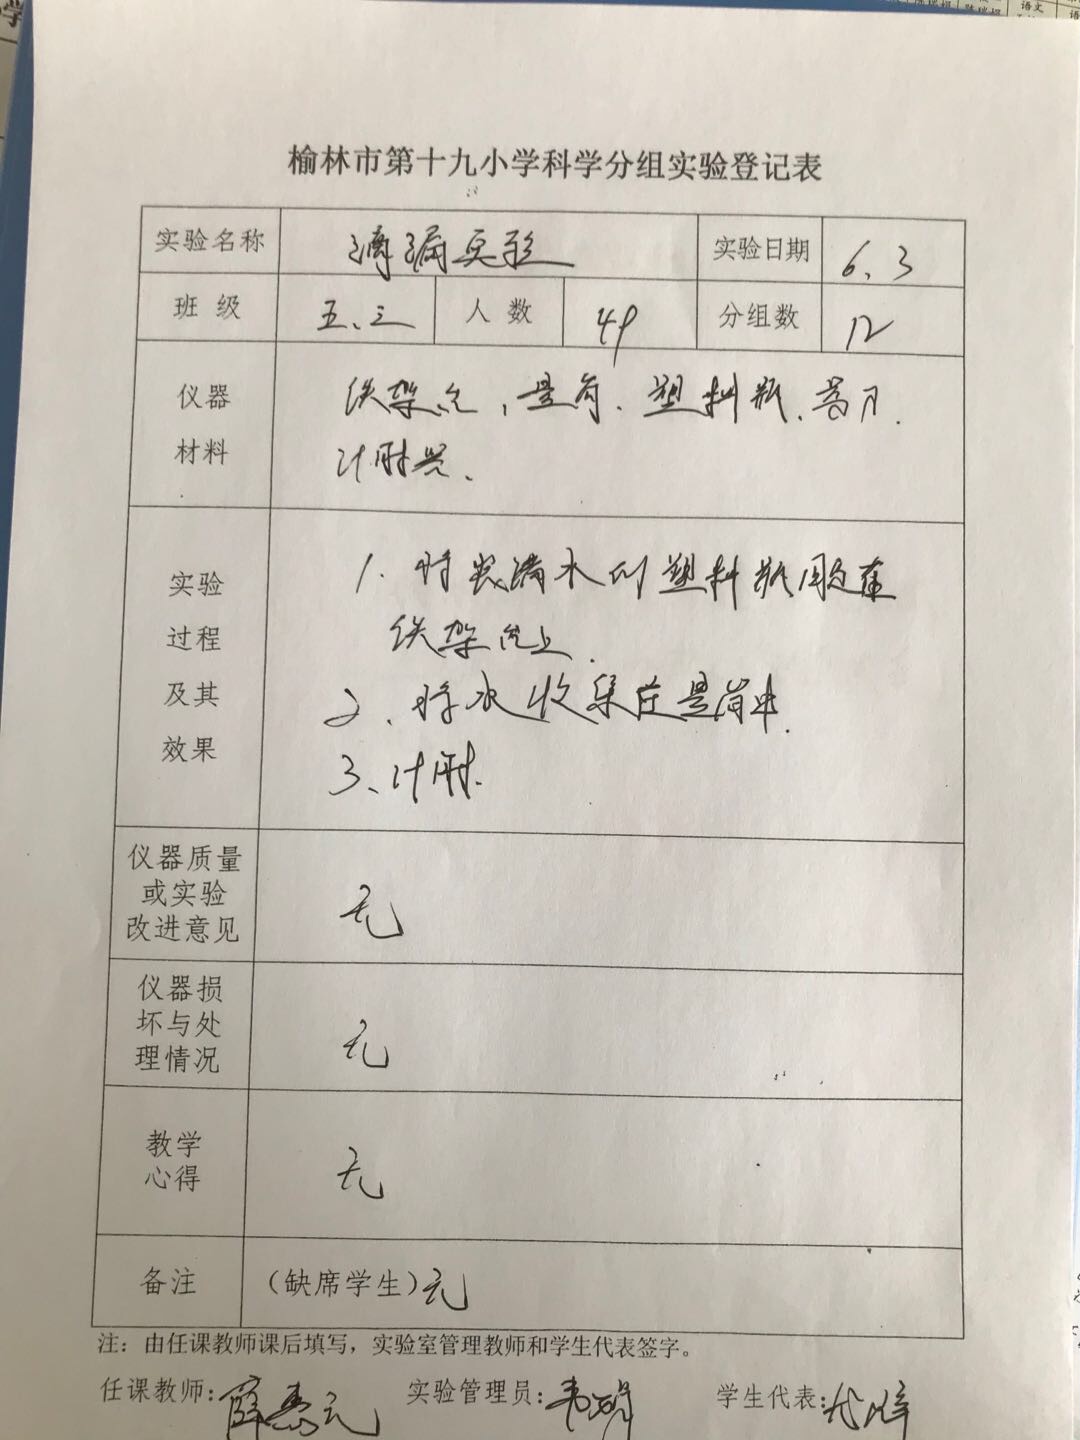 榆林市第十九小学科学分组实验登记表
实验名称 滴漏实验 实验日期 6.3
班级 五.三 人数 49 分组数 12
仪器 铁架台、量筒、塑料瓶、剪刀、
材料 计时器、
实验 1. 将装满水的塑料瓶固定在
过程 铁架台上.
及其 2、将水收集在量筒中.
效果 3、计时.
仪器质量
或实验 无
改进意见
仪器损
坏与处 无
理情况
教学 无
心得
备注 (缺席学生)无
注：由任课教师课后填写，实验室管理教师和学生代表签字。
任课教师: 实验管理员: 学生代表: